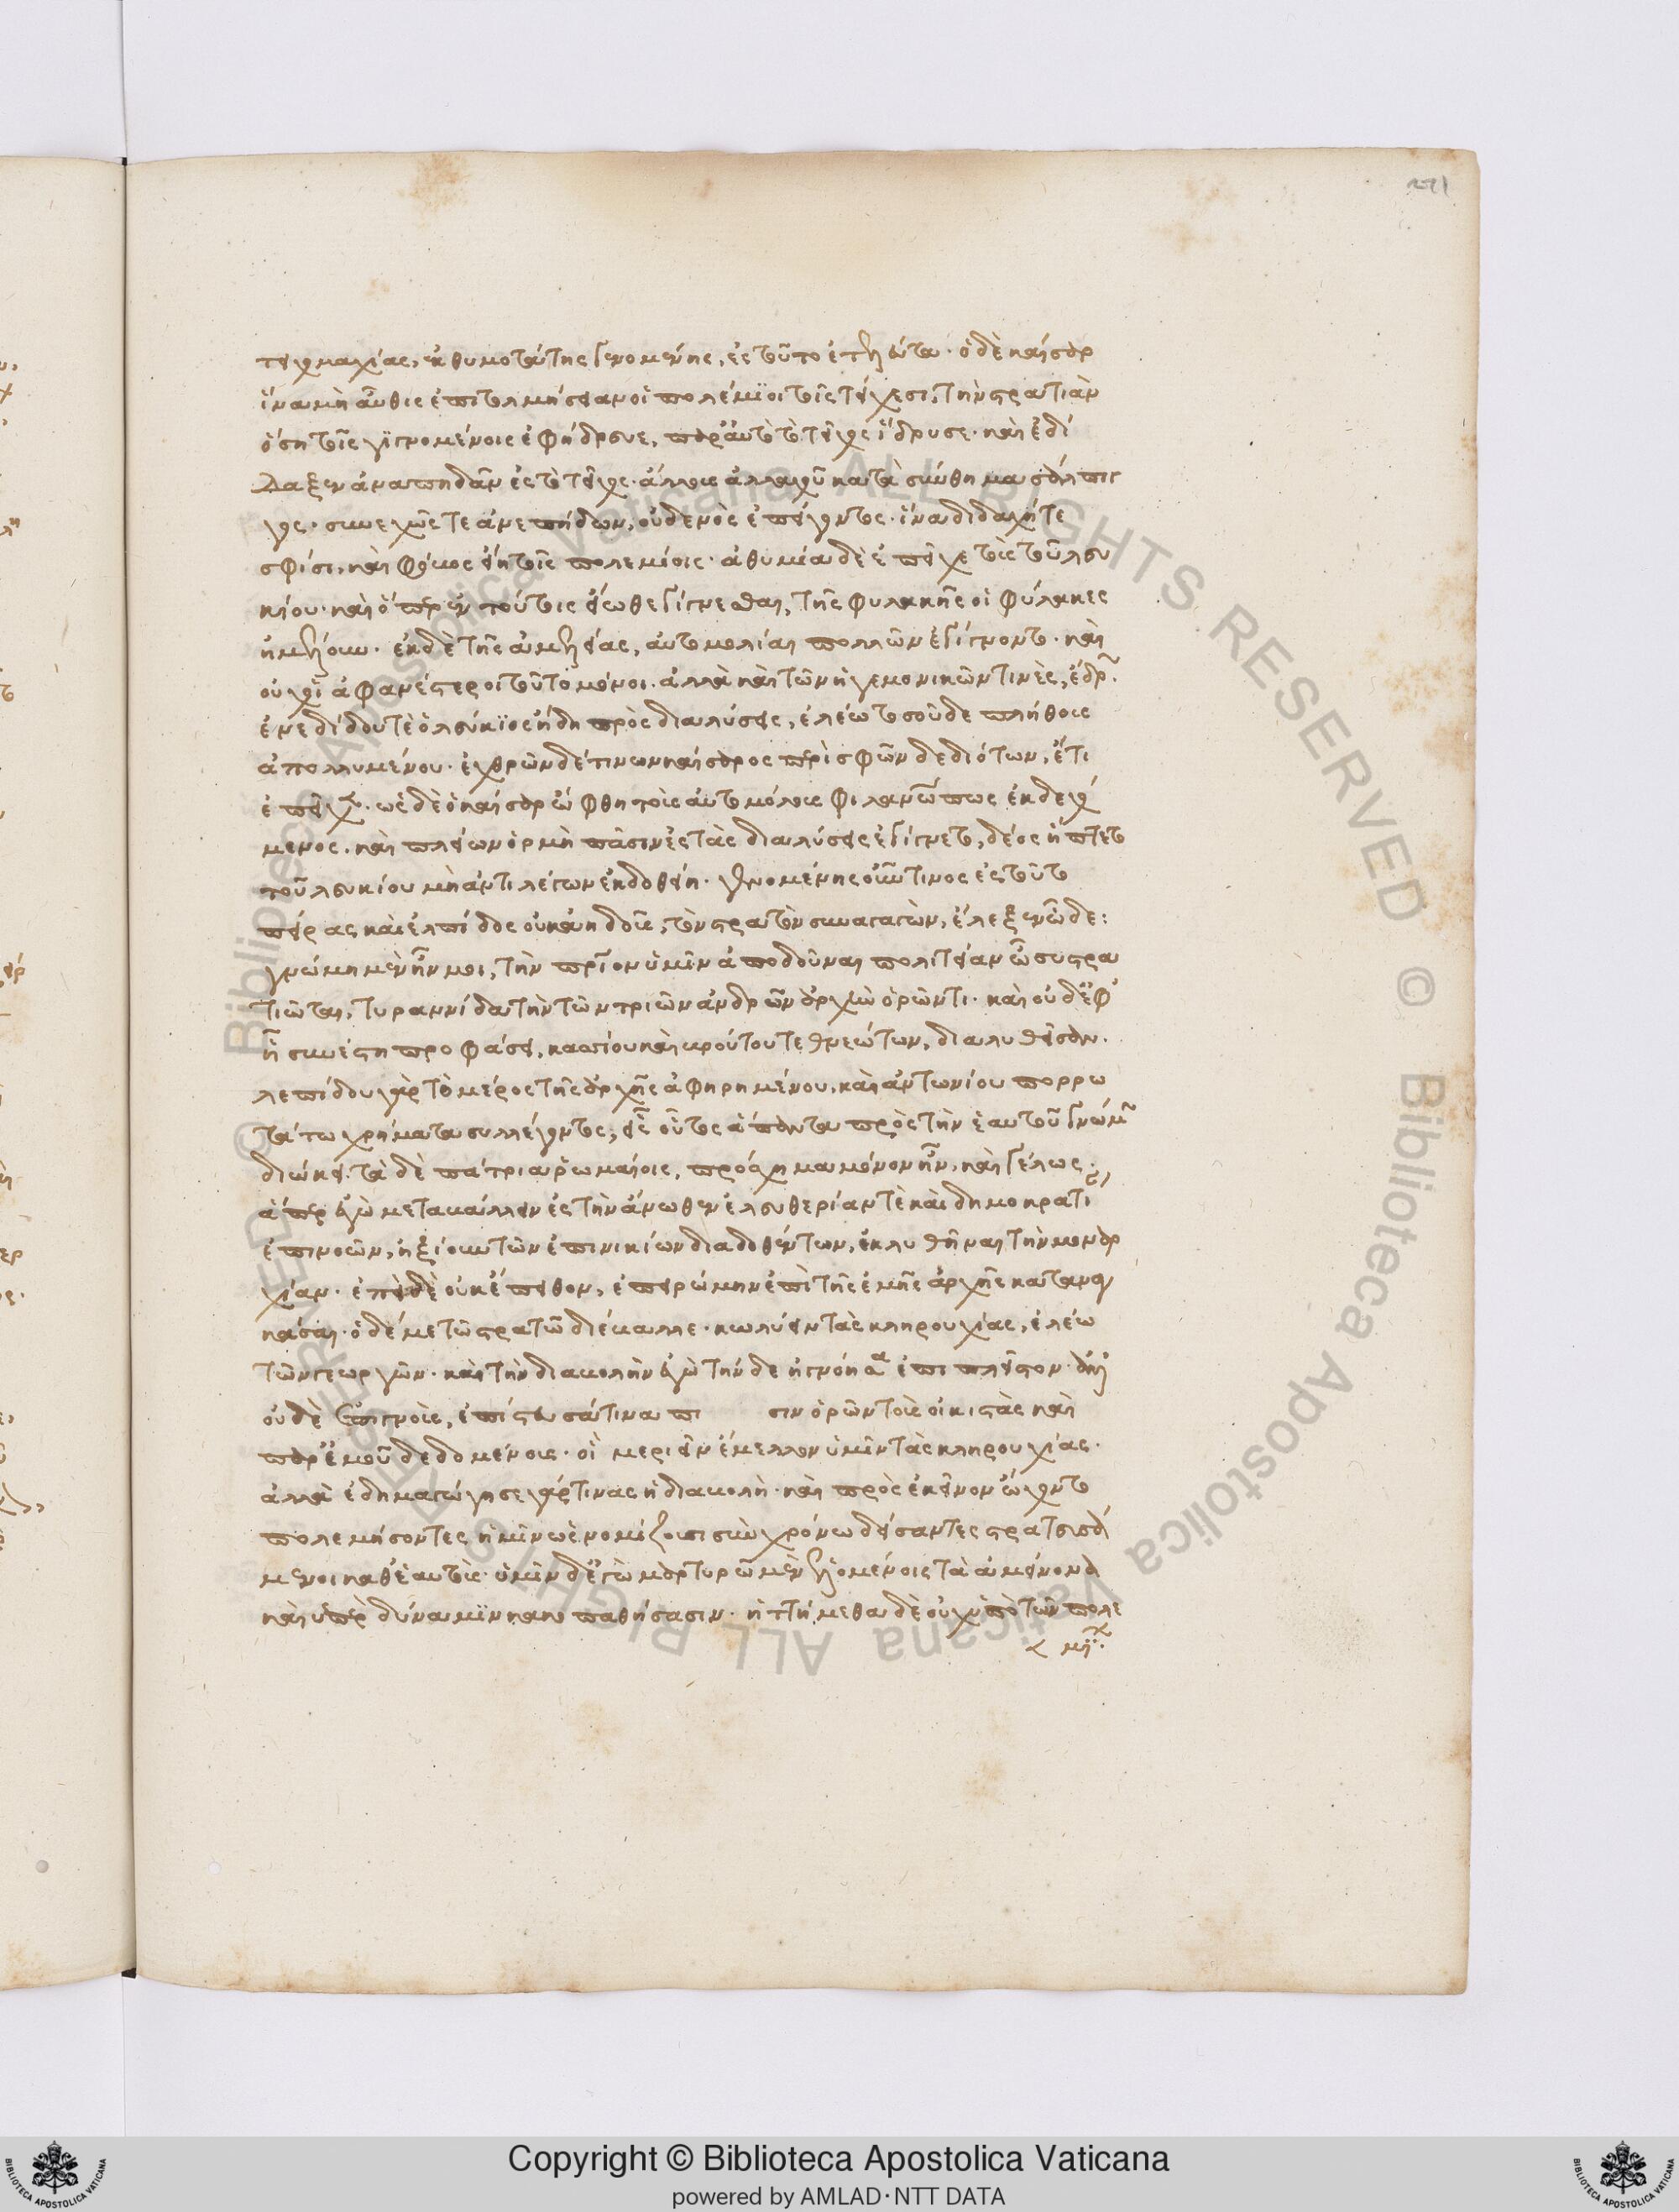 τειχομαχίας, ἐκθυμοτάτης γενομένης, ἐς τοῦτο ἐτελεύτα· ὁ δὲ καῖσαρ
ἵνα μὴ αὖθις ἐπιτολμήσειαν οἱ πολέμϊοι τοῖς τείχεσι, τὴν στρατιὰν
ὅση τοῖς γϊγνομένοις ἐφήδρευε, παρ' αὐτὸ τὸ τεῖχος ἵδρυσε· καὶ ἐδί
δαξεν ἀναπηδᾶν ἐς τὸ τεῖχος· ἄλλους ἀλλαχοῦ κατὰ σύνθημα σάλπιγ
γος· συνεχῶς τε ἀνεπήδων, οὐδενὸς ἐπείγοντος· ἵνα διδαχή τε
σφίσι, καὶ φόβος εἴη τοῖς πολεμίοις· ἀθυμία δὲ ἐπεῖχε τοὺς τοῦ λευ
κίου· καὶ ὅπερ ἐν τούτοις εἴωθε γίγνεσθαι, τῆς φυλακκῆς οἱ φύλακες
ἠμέλουν· ἐκ δὲ τῆς ἀμελείας, αὐτομολίαι πολλῶν ἐγίγνοντο· καὶ
οὐχὶ ἀφανέστεροι τοῦτο μόνοι· ἀλλὰ καὶ τῶν ἡγεμονικῶν τινὲς, ἔδρ~.
ἐνεδίδου τὲ ὁ λεύκϊος ἤδη πρὸς διαλύσεις, ἐλέω τοσοῦδε πλήθους
ἀπολλυμένου· ἐχθρῶν δέ τινων καίσαρος περὶ σφῶν δεδιότων, ἔτι
ἐπεῖχ· ὡς δὲ ὁ καῖσαρ ὤφθη τοὺς αὐτομόλους φιλανθρώπως ἐκδεχό
μενος· καὶ πλείων ὁρμὴ πᾶσιν ἐς τὰς διαλύσεις ἐγίγνετο, δέος ἥπτετο
τοῦ λευκίου μὴ ἀντιλέγων ἐκδοθείη· γενομένης οὖν τινος ἐς τοῦτο
πείρας καὶ ἐλπίδος οὐκ ἀηδοῦς, τὸν στρατὸν συναγαγὼν, ἔλεξεν ὧδε:
γνώμη μὲν ἦν μοι, τὴν πάτριον ὑμῖν ἀποδοῦναι πολιτείαν ὦ συστρα
τιῶται, τυραννίδα τὴν τῶν τριῶν ἀνδρῶν ἀρχὴν ὁρῶντι· καὶ οὐδ' ἐφ'
ἧ συνέστη προφάσει, κασσίου καὶ βρούτου τεθνεώτων, διαλυθεῖσαν.
λεπίδου γὰρ τὸ μέρος τῆς ἀρχῆς ἀφηρημένου, καὶ ἀντωνίου πορρω
τάτω χρήματα συλλέγοντος, εἷς οὗτος ἅπαντα πρὸς τὴν ἑαυτοῦ γνώμ
διώκει· τὰ δὲ πάτρια ῥωμαίοις, πρόσχημα μόνον ἦν, καὶ γέλως·
ἅπερ ἐγὼ μεταβάλλειν ἐς τὴν ἄνωθεν ἐλευθερίαν τὲ καὶ δημοκρατί
ἐπινοῶν, ἠξίουν τῶν ἐπινικίων διαδοθέντων, ἐκλυθῆναι τὴν μοναρ
χίαν· ἐπεὶ δὲ οὐκ ἔπειθον, ἐπειρώμην ἐπὶ τῆς ἐμῆς ἀρχῆς καταναγ
κάσαι· ὁ δέ με τῶ στρατῶ διέβαλλε· κωλύειν τὰς κληρουχίας, ἐλέω
τῶν γεωργῶν· καὶ τὴν διαβολὴν ἐγὼ τήνδε ἠγνόησα ἐπὶ πλεῖστον·
οὐδὲ ἐπιγνοὺς, ἐπίστευσά τινα πι σιν ὁρῶν τοὺς οἰκιστὰς καὶ
παρ' ἐμοῦ δεδομένους· οἳ μεριεῖν ἔμελλον ὑμῖν τὰς κληρουχίας·
ἀλλὰ ἐδημαγώγησε γάρ τινας ἡ διαβολὴ· καὶ πρὸς ἐκεῖνον ᾤχοντο
πολεμήσοντες ἡμῖν ὡς νομίζουσι σὺν χρόνω δείσαντες στρατευσά
μενοι καθ' ἑαυτοὺς· ὑμῖν δ' ἐγὼ μαρτυρῶ μὲν ἑλομένοις τὰ ἀμείνονα
καὶ ὑπὲρ δύναμϊν κακοπαθήσασιν· ἡττήμεθα δὲ οὐχ ὑπὸ τῶν πολε
μΐ